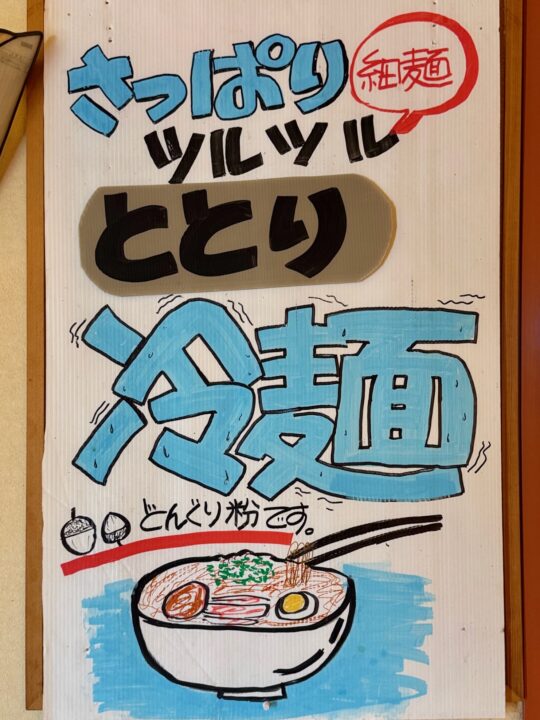 さっぱり
細麺
ツルツル
ととり
冷麺
どんぐり粉です。